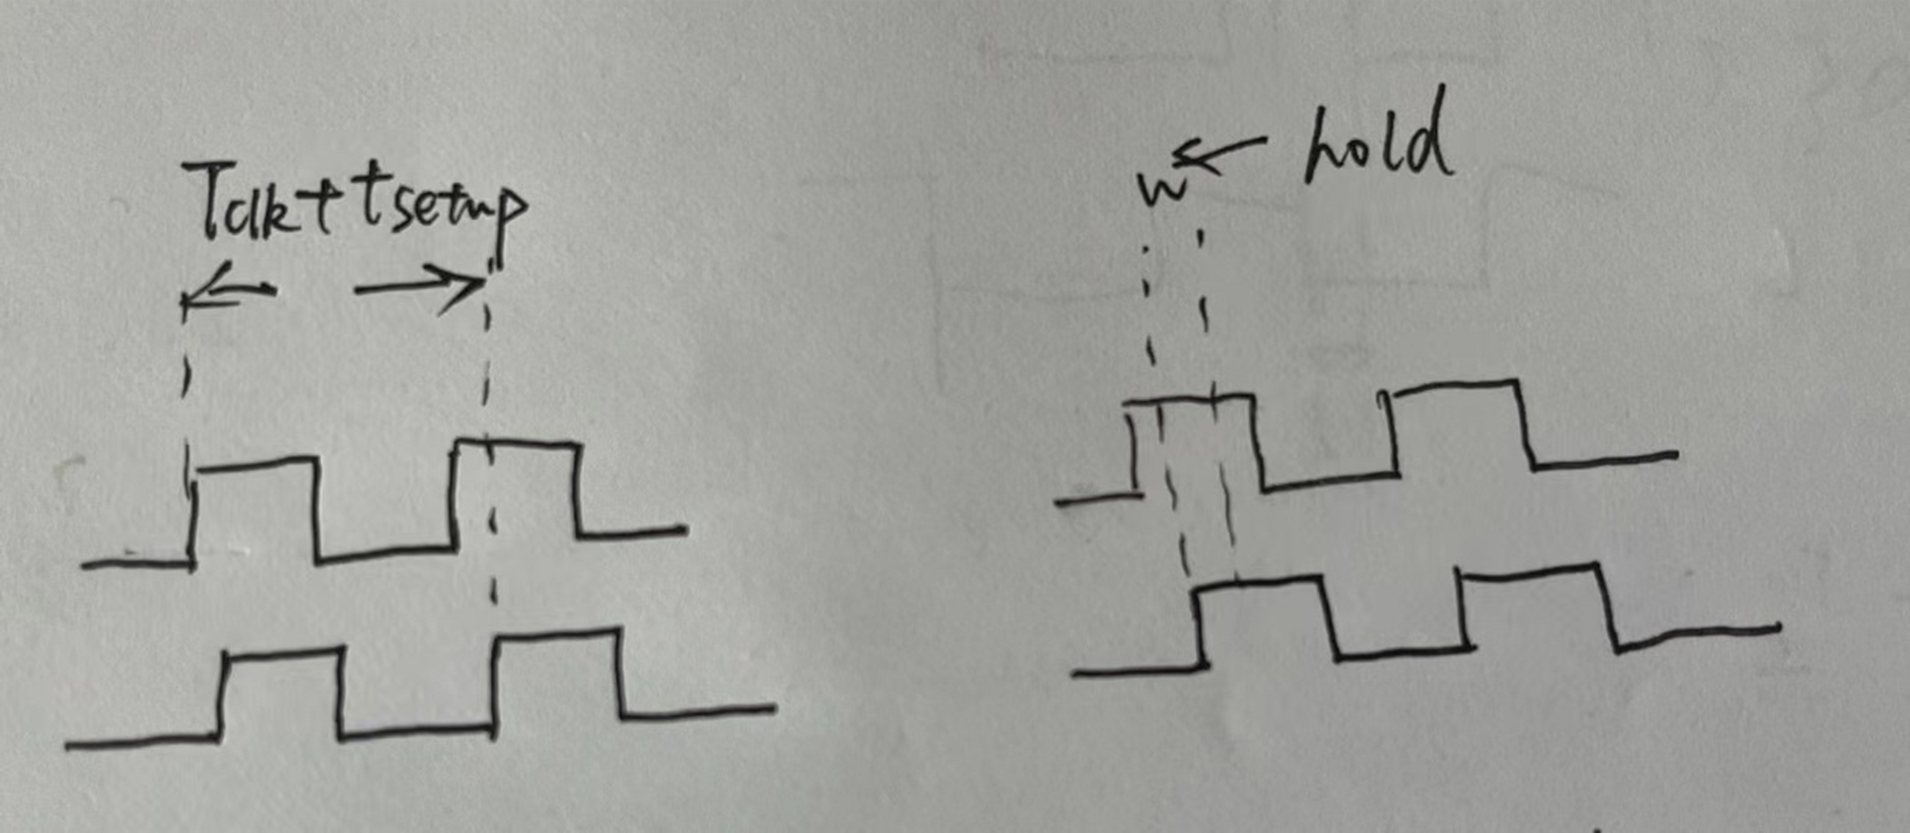 Tclk+tsetup
hold